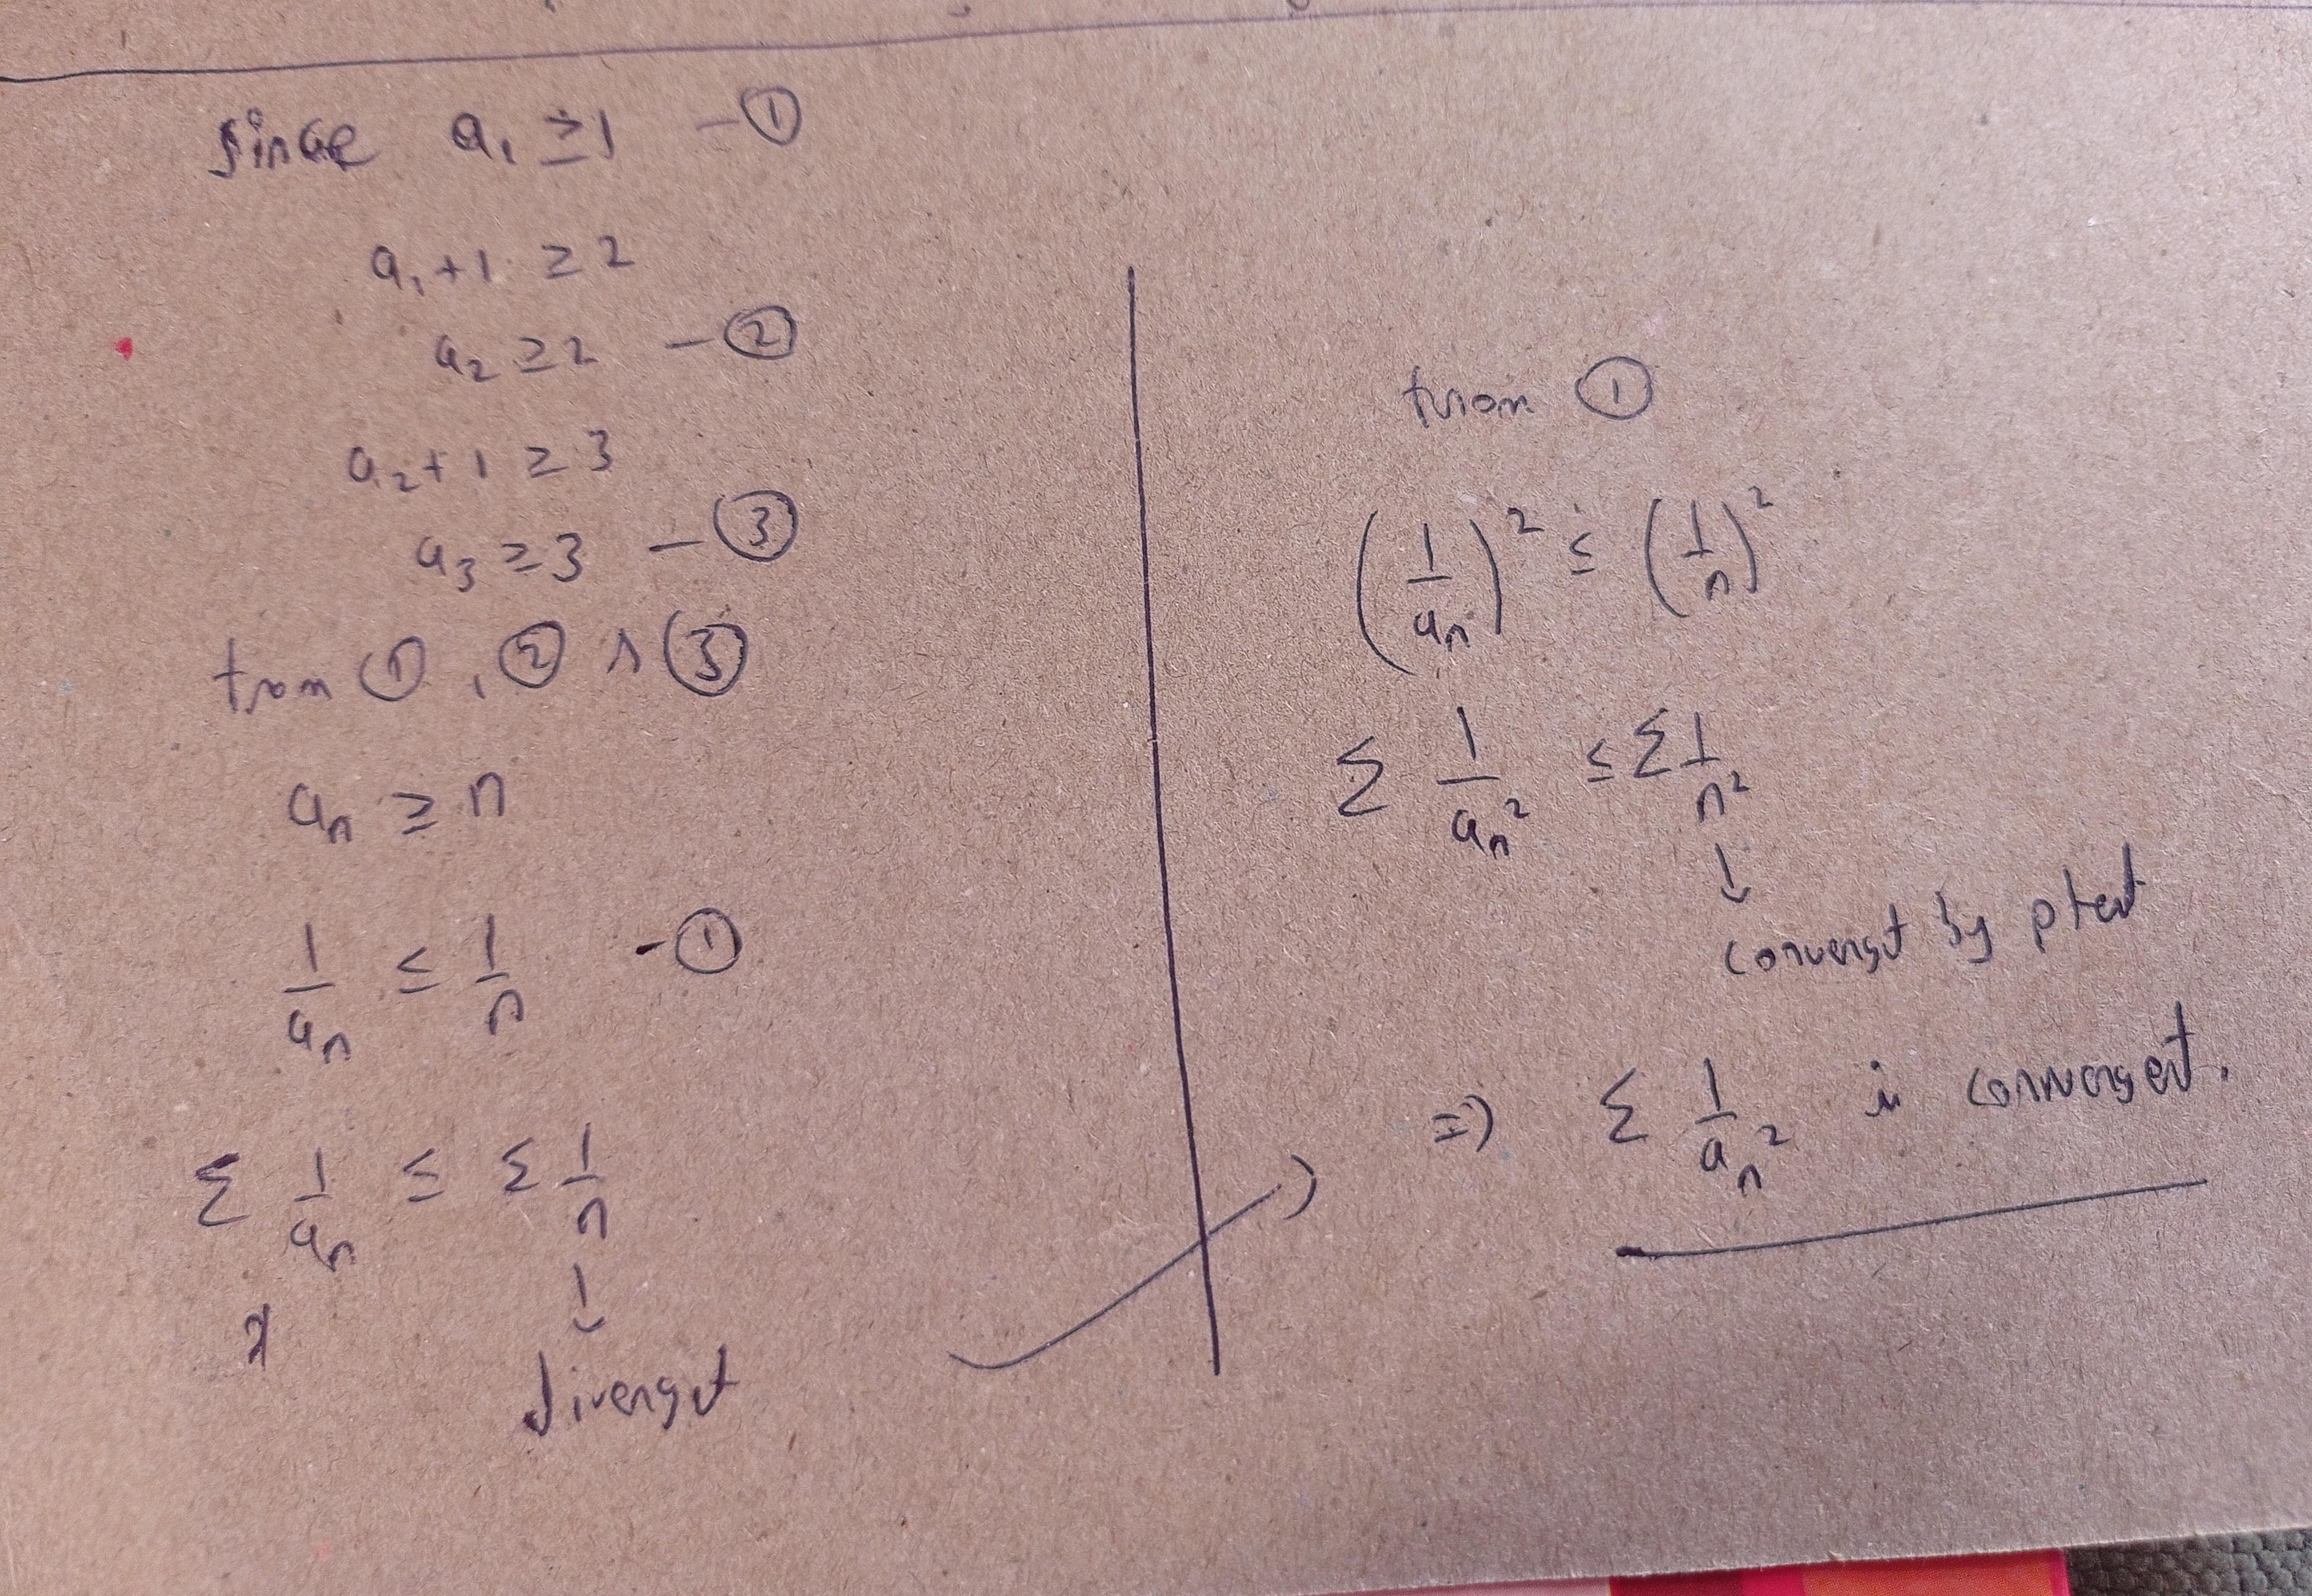 since a₁ ≥ 1 – ①
a₁ + 1 ≥ 2
a₂ ≥ 2 – ②
a₂ + 1 ≥ 3
a₃ ≥ 3 – ③
from ①, ② & ③
aₙ ≥ n
1/aₙ ≤ 1/n – ①
Σ 1/aₙ ≤ Σ 1/n
↓
divergt
from ①
(1/aₙ)² ≤ (1/n)²
Σ 1/aₙ² ≤ Σ 1/n²
↓
convergt by p test
⇒ Σ 1/aₙ² is convergent.